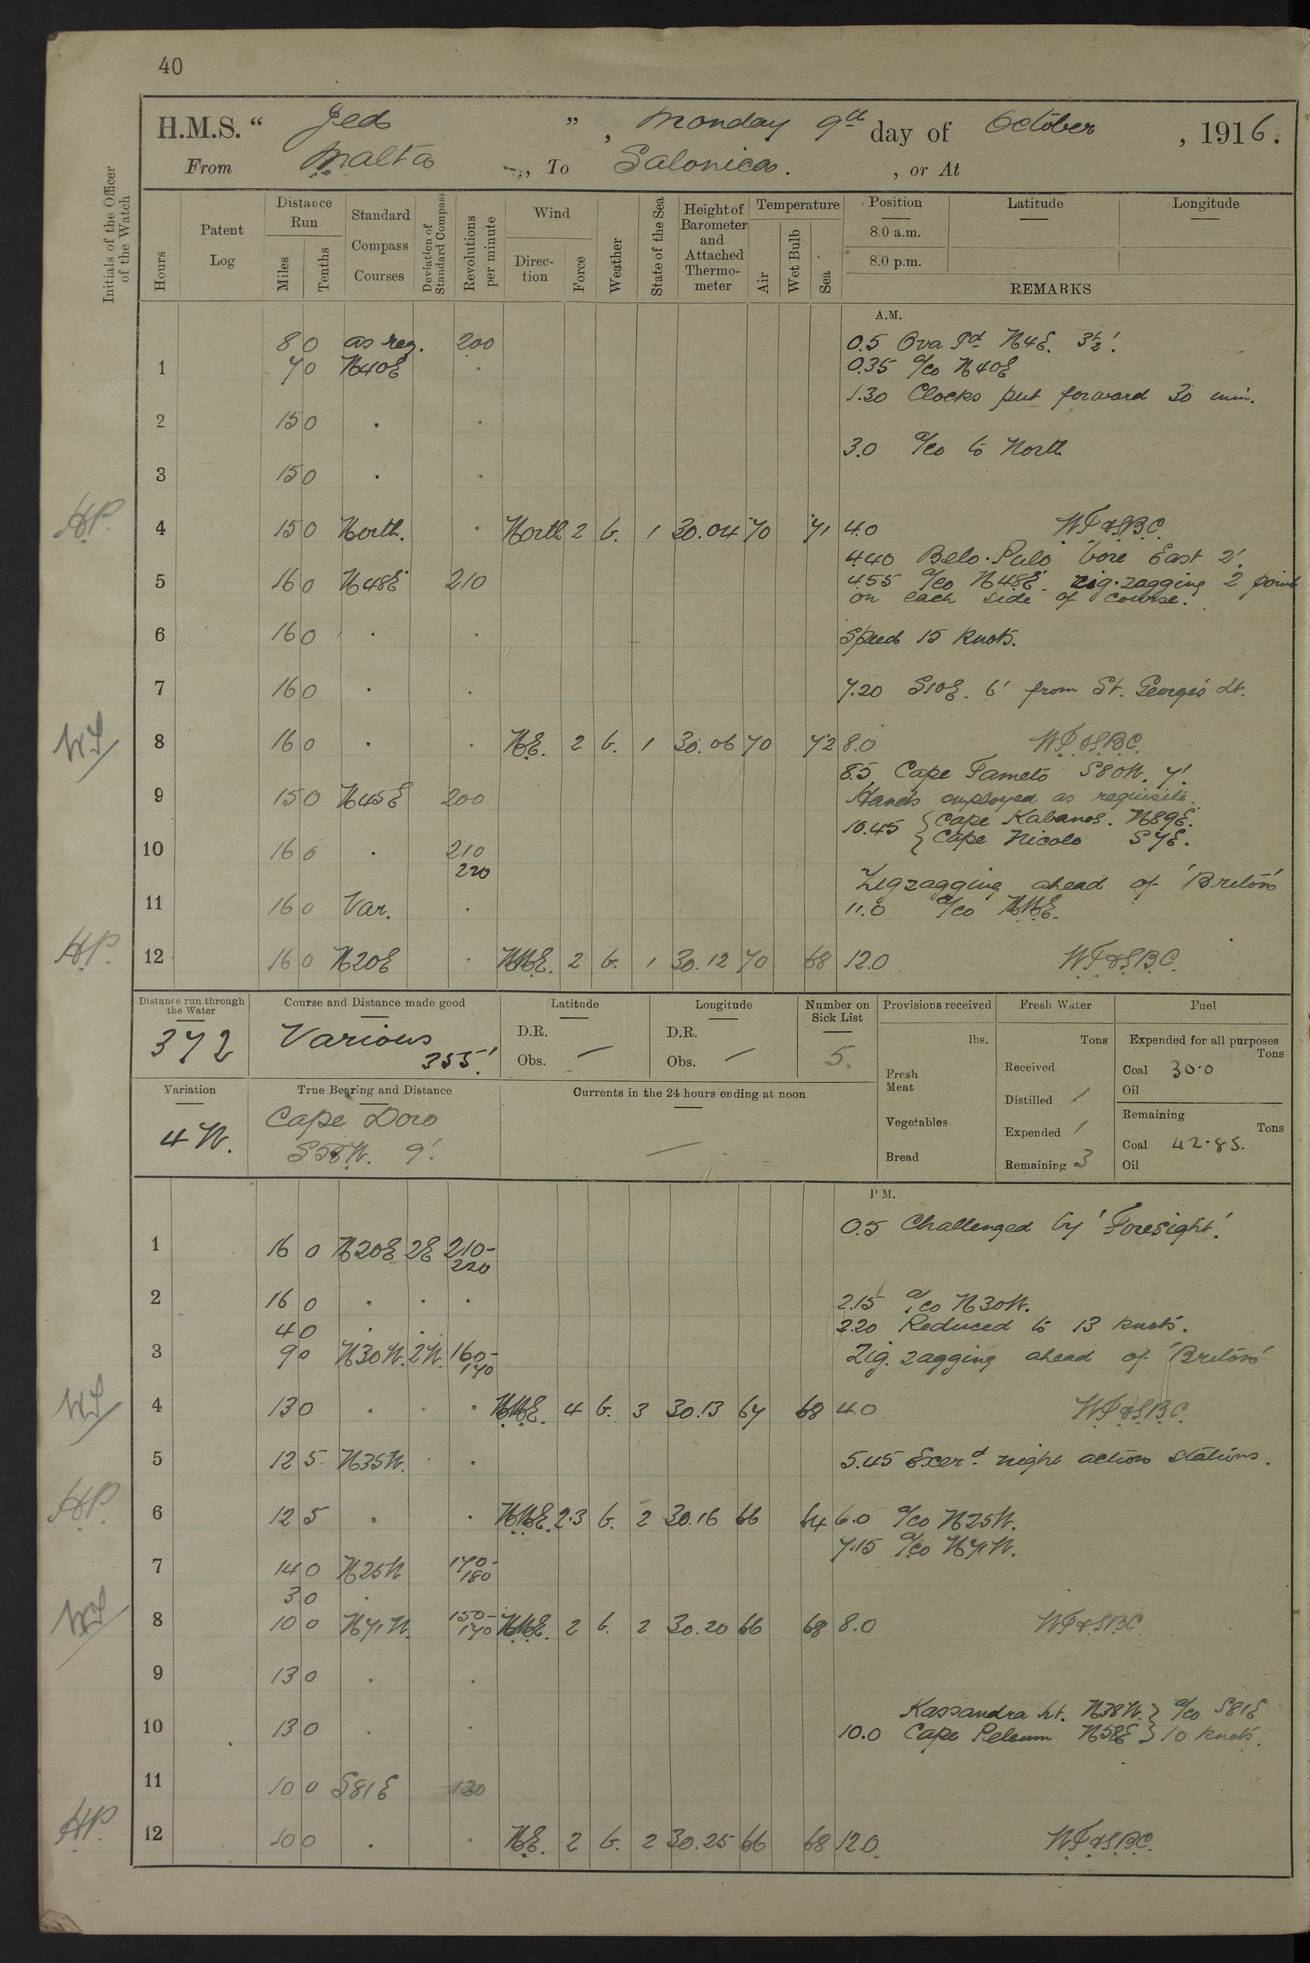 40
H.M.S. “ Jed ” , Monday 9th day of October , 1916.
From Malta , To Salonica. , or At
Initials of the Officer of the Watch
Hours
Patent Log
Distance Run
Miles
Tenths
Standard Compass Courses
Deviation of Standard Compass
Revolutions per minute
Wind
Direction
Force
Weather
State of the Sea
Height of Barometer and Attached Thermometer
Temperature
Air
Wet Bulb
Sea
Position
8.0 a.m.
8.0 p.m.
Latitude
Longitude
REMARKS
A.M.
8 0 as req. 200 0.5 Ova Pd N4E. 3½'.
1 7 0 N40E . 0.35 a/co N40E
1.30 Clocks put forward 30 min.
2 15 0 . .
3.0 a/co to North
3 15 0 . .
H.P. 4 15 0 North. . North 2 b. 1 30.04 70 71 4.0 W.F.&S.B.C.
4.40 Belo-Pulo bore East 2'.
5 16 0 N48E 210 4.55 a/co N48E. zig-zagging 2 point
on each side of course.
6 16 0 . . Speed 15 knots.
7 16 0 . . 7.20 S10E. 6' from St. George's Lt.
8 16 0 . . N.E. 2 b. 1 30.06 70 72 8.0 W.F.&S.B.C.
8.5 Cape Tameto S80W. 7'.
9 15 0 N45E 200 Hands employed as requisite.
10.45 { Cape Kabanos. N89E.
Cape Nicolo S7E.
10 16 0 . 210
220
Zigzagging ahead of 'Briton'
11 16 0 Var. . 11.0 a/co NNE.
H.P. 12 16 0 N20E . NNE. 2 b. 1 30.12 70 68 12.0 W.F.&S.B.C.
Distance run through the Water
372
Course and Distance made good
Various
355'.
Latitude
D.R.
Obs. —
Longitude
D.R.
Obs. —
Number on Sick List
5.
Provisions received
lbs.
Fresh Meat
Vegetables
Bread
Fresh Water
Tons
Received
Distilled 1
Expended 1
Remaining 3
Fuel
Expended for all purposes
Tons
Coal 30.0
Oil
Remaining
Tons
Coal 42.85.
Oil
Variation
4 W.
True Bearing and Distance
Cape Doro
S58W. 9'.
Currents in the 24 hours ending at noon
—
P.M.
0.5 Challenged by 'Foresight'.
1 16 0 N20E 2E 210-
220
2 16 0 . . . 2.15 a/co N30W.
4 0 . . 2.20 Reduced to 13 knots.
3 9 0 N30W. 2W. 160-
170 Zig-zagging ahead of 'Briton'
4 13 0 . . . NNE. 4 b. 3 30.13 67 68 4.0 W.F.&S.B.C.
5 12 5 N35W. . . 5.45 Exerd. night action stations.
H.P. 6 12 5 . . NNE. 2.3 b. 2 30.16 66 64 6.0 a/co N25W.
7.15 a/co N71W.
7 14 0 N25W 170-
180
3 0 .
8 10 0 N71W. 150-
170 NNE. 2 b. 2 30.20 66 68 8.0 W.F.&S.B.C.
9 13 0 . .
Kassandra Lt. N38W. } a/co S81E
10 13 0 . . 10.0 Cape Peleum N58E } 10 knots.
11 10 0 S81E 130
H.P. 12 10 0 . . N.E. 2 b. 2 30.25 66 68 12.0 W.F.&S.B.C.